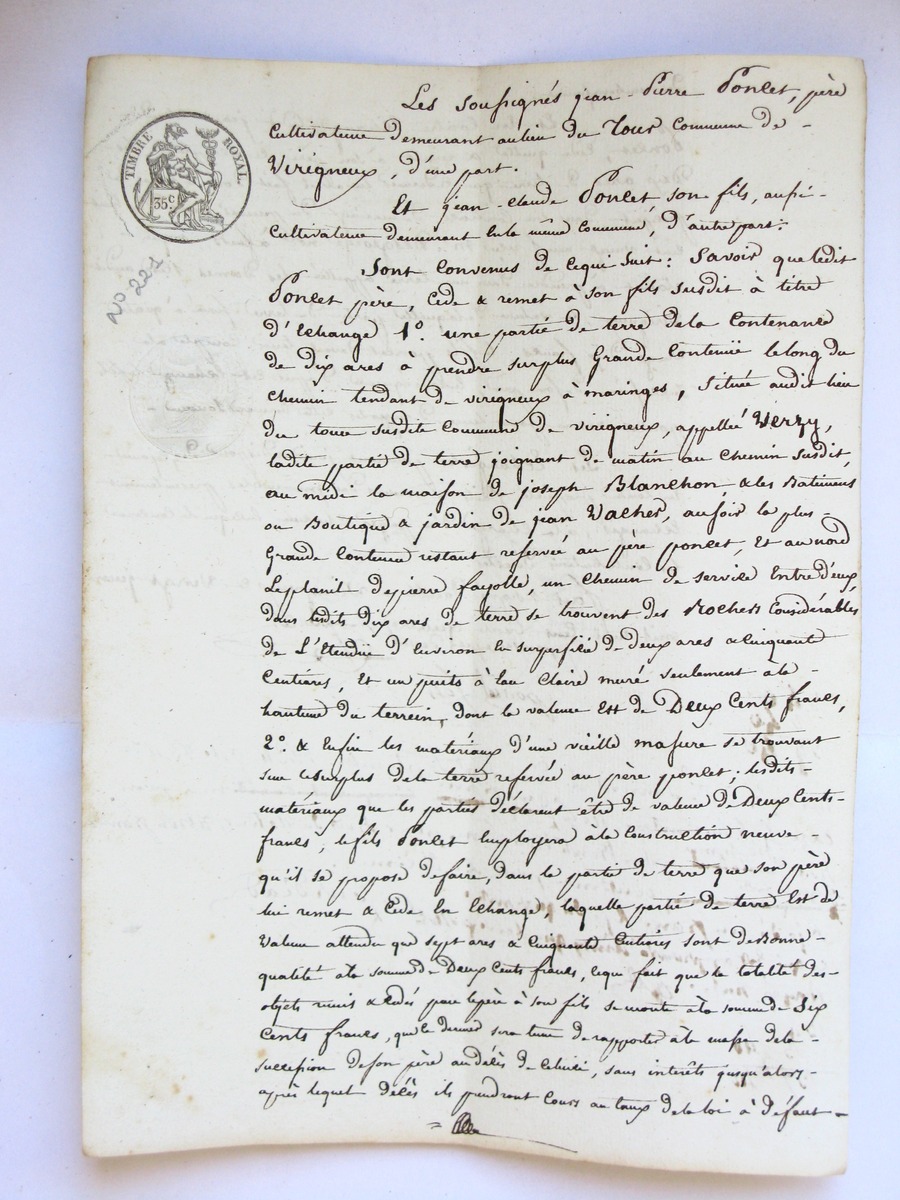 TIMBRE ROYAL
35 c.
N° 221
Les soussignés jean-Pierre Poncet, père
Cultivateur demeurant au lieu du Tour Commune de -
Virigneux, d'une part.
Et jean-claude Poncet son fils, aussi -
Cultivateur demeurant en la même Commune, d'autre part:
Sont Convenus de Cequi Suit: Savoir que ledit
Poncet père, Cede & remet à son fils susdit à titre
d'Echange 1°. une partié de terre dela Contenance
de dix ares à prendre surplus Grande Contenüe le long du
Chemin tendant de virigneux à maringes, Située audit lieu
du tour susdite Commune de virigneux, appellée Verzy,
ladite partié de terre joignant de matin au Chemin susdit,
au midi la maison de joseph Blanchon, & les Batimens
ou Boutique & jardin de jean Vacher, au soir la plus -
Grande Contenue restant reservée au père poncet, Et au nord
Le planil depierre fayolle, un Chemin de service Entre d'eux,
dans lesdits dix ares de terre se trouvent des Rochers Considérables
de L'Etendüe d'Environ En superficie de deux ares & Cinquante
Centiares, Et un puits à Eau Claire muré seulement à la -
hauteur du terrein, dont la valeur Est de Deux Cents francs,
2°. & Enfin les matériaux d'une vieille masure se trouvant
sur lesurplus dela terre reservée au père poncet; lesdits -
matériaux que les parties déclarent être de valeur de Deux Cents -
francs, le fils Poncet Employera à la Construction neuve -
qu'il se propose defaire, dans la partie de terre que son père
lui remet & Cede En Echange, laquelle partié de terre Est de
Valeur attendu que sept ares & Cinquante Centiares sont de Bonne -
qualité à la somme de Deux Cents francs, Cequi fait que la totalité des -
objets remis & Cedés par le père à son fils se monte à la somme de Six
Cents francs, que Ce dernier sera tenu de rapporter à la masse dela -
succession de son père au décès de Celuici, sans intérêts jusqu'alors -
après lequel décès ils prendront Cours au taux de la loi à défaut -